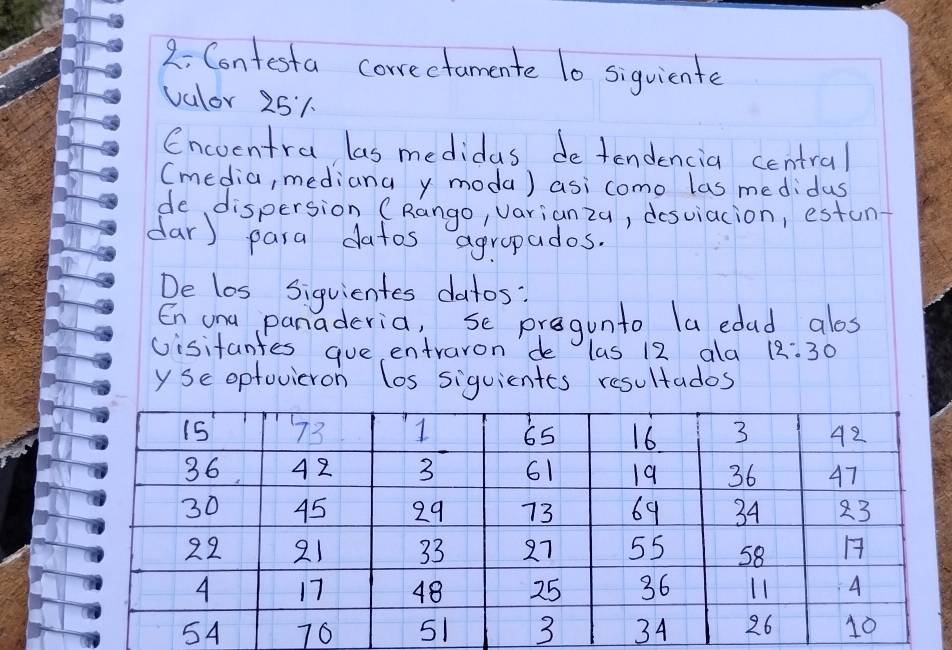 2.- Contesta correctamente lo siguiente
valor 25%
Encuentra las medidas de tendencia central
(media, mediana y moda) asi como las medidas
de dispersion (Rango, varianza, desviacion, estan-
dar) para datos agrupados.
De los siguientes datos:
En una panaderia, se pregunto la edad alos
visitantes que entraron de las 12 ala 12:30
y se optuvieron los siguientes resultados
15 73 1 65 16 3 42
36 42 3 61 19 36 47
30 45 29 73 69 34 23
22 21 33 27 55 58 17
4 17 48 25 36 11 4
54 70 51 3 34 26 10